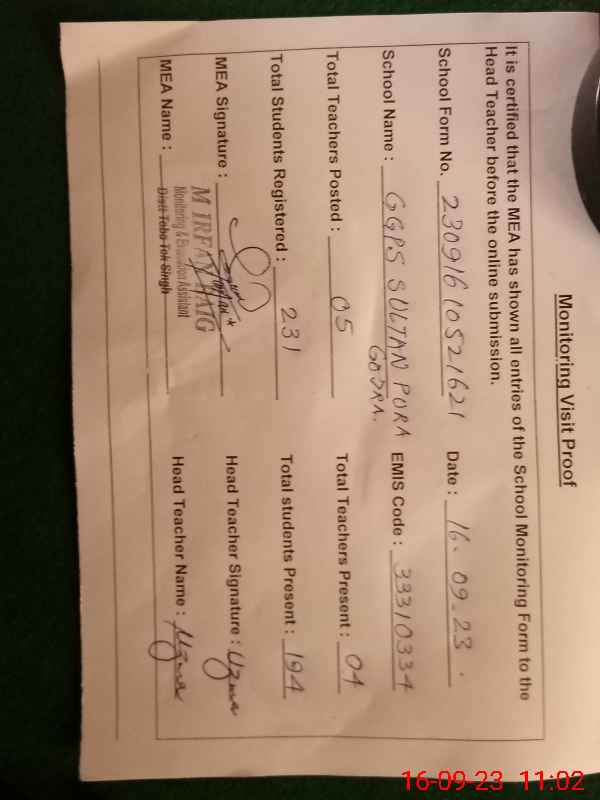 Monitoring Visit Proof
It is certified that the MEA has shown all entries of the School Monitoring Form to the
Head Teacher before the online submission.
School Form No. 23091610521621 Date : 16-09-23.
School Name : GGPS SULTAN PURA EMIS Code : 33310334
GOJRA.
Total Teachers Posted : 05 Total Teachers Present : 04
Total Students Registered : 231 Total students Present : 194
MEA Signature : Head Teacher Signature : Uzma
M IRFAN BAIG
Monitoring & Evaluation Assistant
Distt Toba Tek Singh
MEA Name : Head Teacher Name : Uzma
16-09-23 11:02